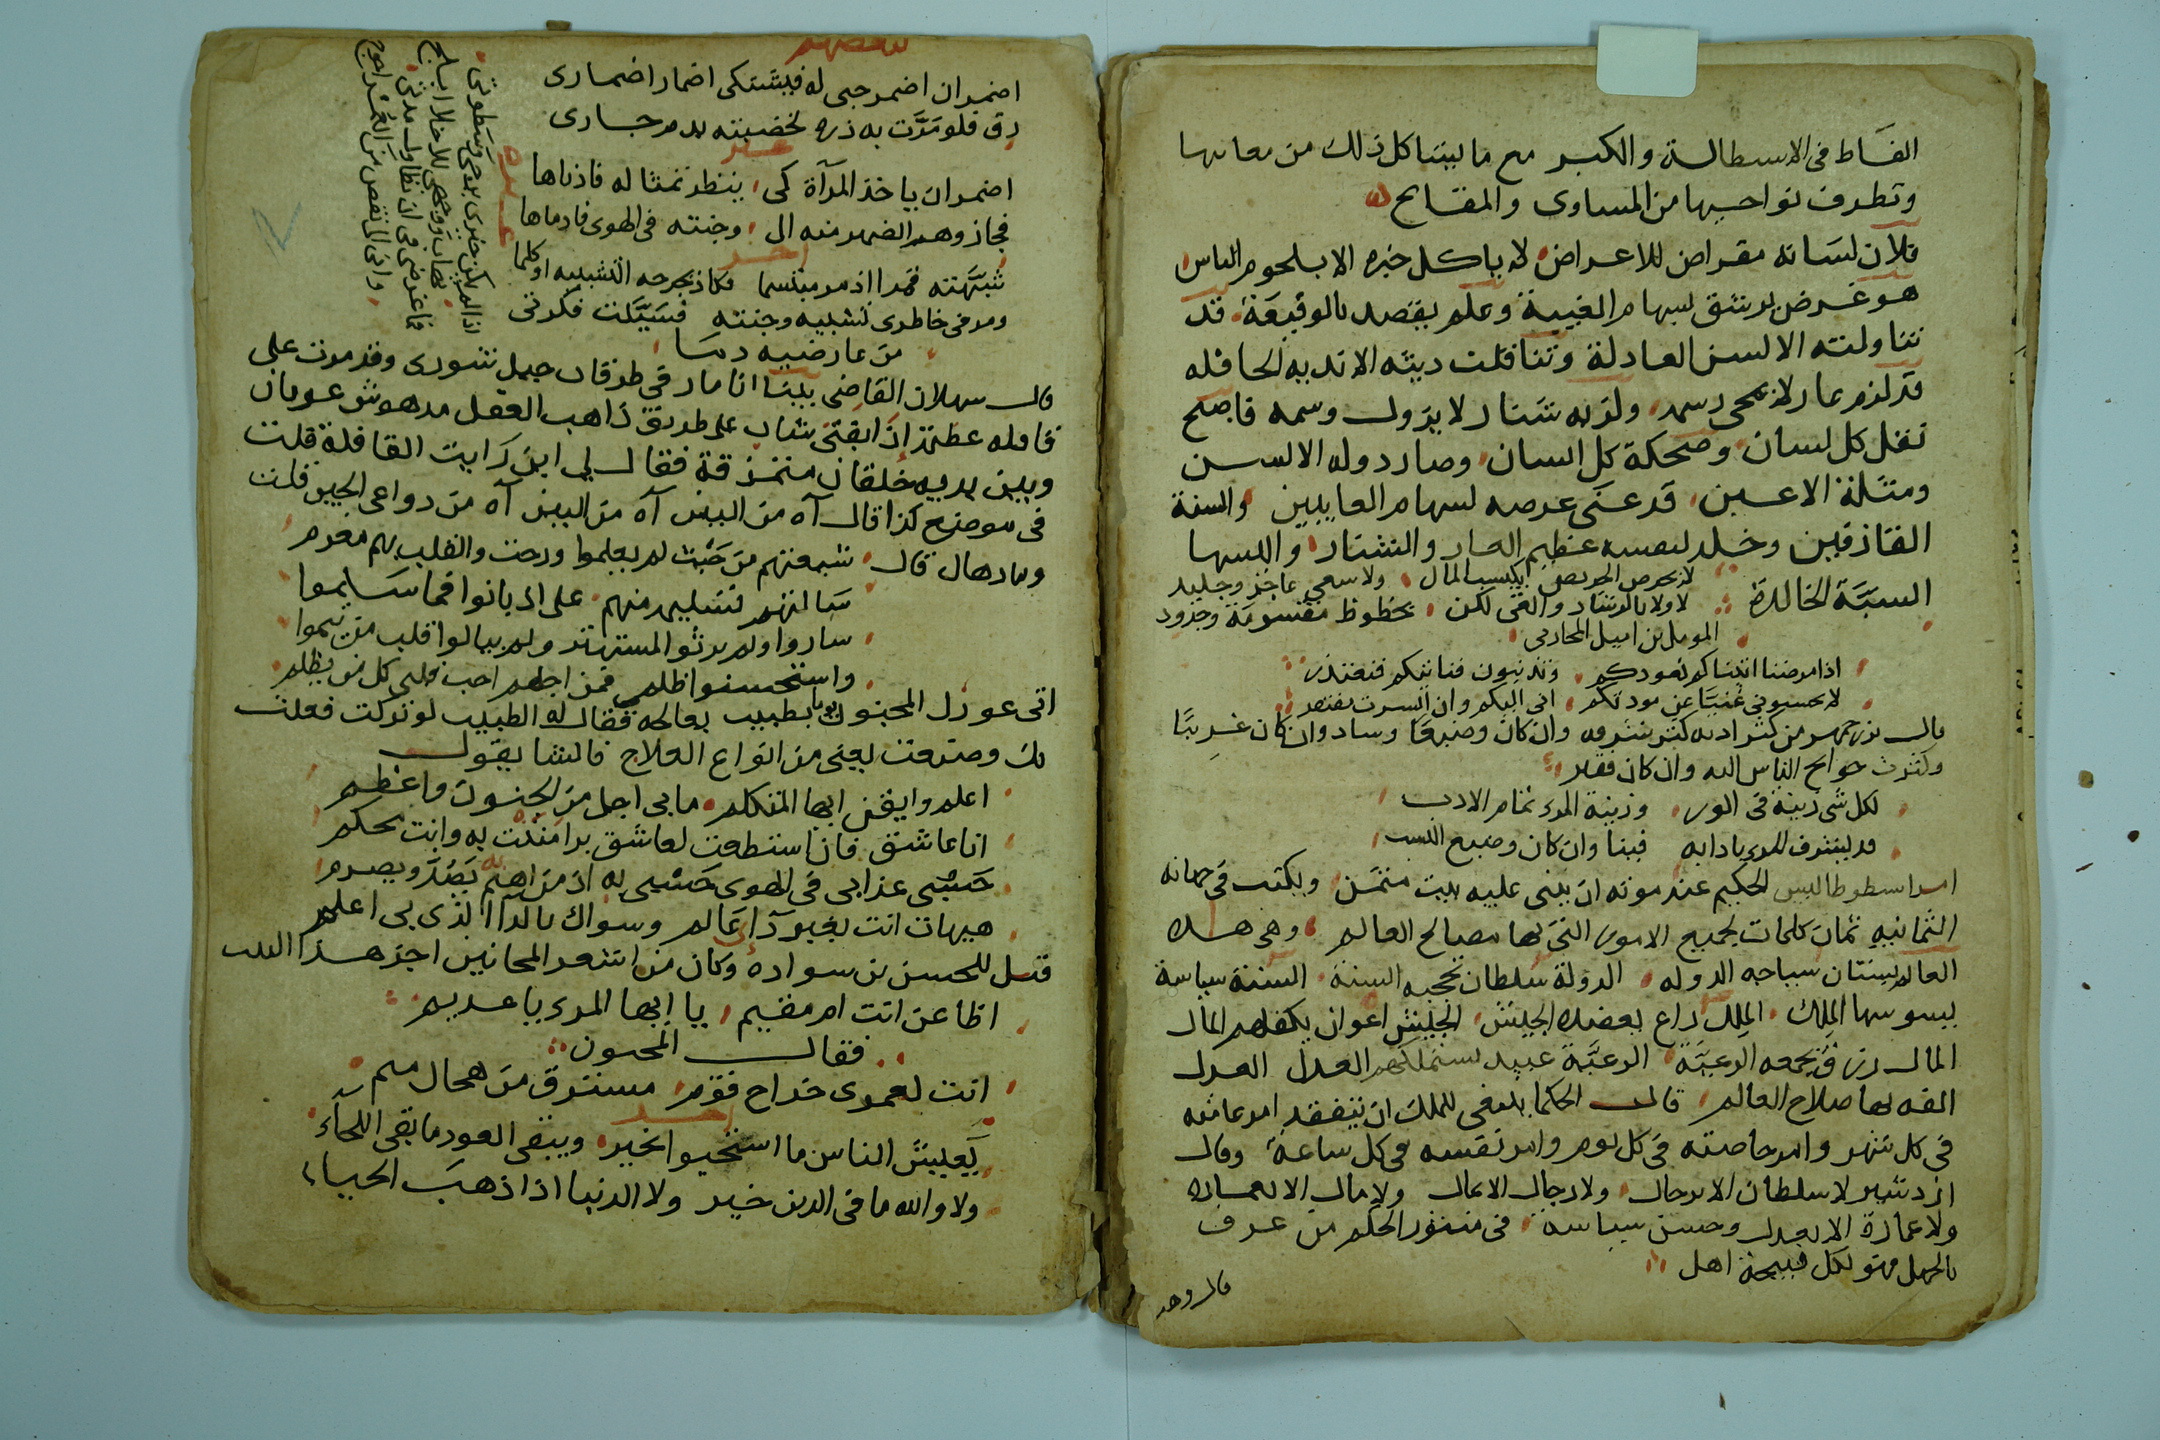 الفاظ في الاستطالة والكبر مع ما يشاكل ذلك من معانيها
وتطرف نواحيها من المساوى والمقابح
فلان لسانه مقراض للاعراض لا ياكل خبزه الا بلحوم الناس
هو غرض يرشق بسهام الغيبة وعلم يقصد بالوقيعة قد
تناولته الالسن العادلة وتناقلت حديثه الاندية الحافله
قد لزم عار لا يمحى رسمه ولزبه شنار لا يزول وسمه فاصبح
نقل كل لسان وضحكة كل انسان وصار دولة الالسن
ومثلة الاعين قد عرضه لسهام العايبين والسنة
القاذفين وخلد لنفسه عظيم العار والشنار والبسها
السبة الخالدة
لا بحرص الحريص يكتسب المال ولا سعي عاجز وجليد
لا ولا بالرشاد والغى لكن بحظوظ مقسومة وجدود
المومل بن اميل المحاربى
اذا مرضنا اتيناكم نعودكم وتذنبون فناتيكم فنعتذر
لا تحسبونى غنيا عن مودتكم انى اليكم وان ايسرت مفتقر
قال بزرجمهر من كثر ادبه كثر شرفه وان كان وضيعا وساد وان كان غريبا
وكثرت حوايج الناس اليه وان كان فقيرا
لكل شى زينة فى الورى وزينة المرء تمام الادب
قد يشرف المرء بادابه فينا وان كان وضيع النسب
امر ارسطوطاليس الحكيم عند موته ان يبنى عليه بيت مثمن ويكتب فى جهاته
الثمانيه ثمان كلمات لجميع الامور التى بها مصالح العالم وهى هذه
العالم بستان سياجه الدوله الدولة سلطان تحجبه السنة السنة سياسة
يسوسها الملك الملك راع يعضده الجيش الجيش اعوان يكفلهم المال
المال رزق تجمعه الرعية الرعية عبيد يستملكهم العدل العدل
الفه بها صلاح العالم قالت الحكما ينبغى للملك ان يتفقد امر عامته
فى كل شهر وامر خاصته فى كل يوم وامر نفسه فى كل ساعة وقال
ازدشير لا سلطان الا برجال ولا رجال الا بمال ولا مال الا بعمارة
ولا عمارة الا بعدل وحسن سياسة فى منثور الحكم من عرف
بالجهل فهو لكل قبيحة اهل
قال وهب
لبعضهم
اضمر ان اضمر حبى له فيشتكى اضمار اضمارى
رق فلو مرت به ذره لخضبته بدم جارى
غيره
اضمر ان ياخذ المرآة كى ينظر تمثاله فادناها
فجاز وهم الضمير منه الى وجنته فى الهوى فادماها
اخر
شبهته قمرا اذ مر مبتسما فكاد يجرحه التشبيه او كلما
ومر فى خاطرى تشبيه وجنته فسيلت فكرتى
من عارضيه دما
قال سهلان القاضى بينا انا مار فى طرقات جبل شورى وقد مرت على
قافله عظيمة اذ ابفتى شاب على طريق ذاهب العقل مدهوش عريان
وبين يديه خلقان متمزقة فقال لي اين رايت القافلة قلت
فى موضع كذا قال آه من البين آه من البين آه من دواعى الحين قلت
وما دهاك قال شيعتهم من حيث لم يعلموا ورحت والقلب بهم مغرم
سالتهم تسليمة منهم على اذ بانوا فما سلموا
ساروا ولم يرثوا لمستهتر ولم يبالوا قلب من تيموا
واستحسنوا ظلمى فمن اجلهم احب قلبى كل من يظلم
اتى عورك المجنون يوما بطبيب يعالجه فقال له الطبيب لو تركت فعلت
بك وصنعت يعنى من انواع العلاج فانشا يقول
اعلم وايقن ايها المتكلم مابى اجل من الجنون واعظم
انا عاشق فان استطعت لعاشق برا مننت به وانت محكم
حسبى عذابى فى الهوى حسبى به اذ من اهيم به يصد ويصرم
هيهات انت بغير دائى عالم وسواك بالداا الذى بى اعلم
قيل للحسن بن سوادة وكان من اشعر المجانين اجز هذا البيت
اظاعن انت ام مقيم يا ايها المرء يا عديم
فقال المجنون
انت لعمرى خداج قوم مسترق من
اخر
يعيش الناس ما استحيوا بخير ويبقى العود ما بقى اللحاء
ولا والله ما فى الدين خير ولا الدنيا اذا ذهب الحياء
غيره
اذا لم يكن خيرى يرجى وسطوتى
تهاب ووجهى للاخلا ابلج
فما غرضى فى ان تطاول مدتى
وانى الى نقص من العمر احوج